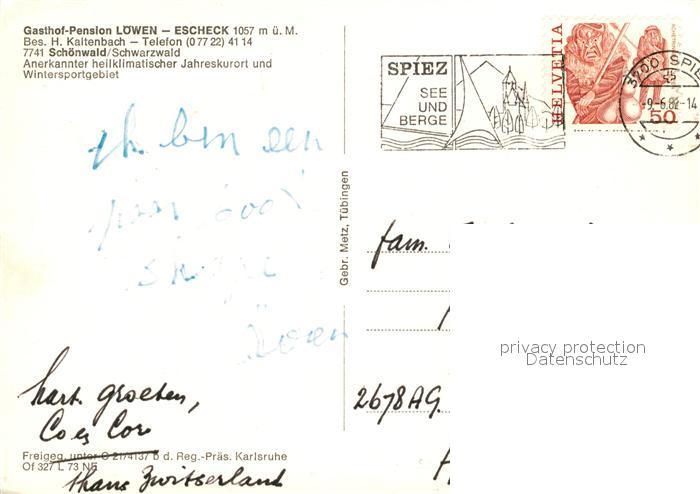 Gasthof-Pension LÖWEN – ESCHECK 1057 m ü. M.
Bes. H. Kaltenbach – Telefon (0 77 22) 41 14
7741 Schönwald/Schwarzwald
Anerkannter heilklimatischer Jahreskurort und
Wintersportgebiet
SPIEZ
SEE
UND
BERGE
HELVETIA
50
3700 SPIEZ
-9.-6.82-14
ik ben een
Koen
hart. groeten,
Co en Cor
thans Zwitserland
Freigeg. unter C 21/4137 b d. Reg.-Präs. Karlsruhe
Of 327 L 73 NE
Gebr. Metz, Tübingen
fam.
2678 AG.
privacy protection
Datenschutz